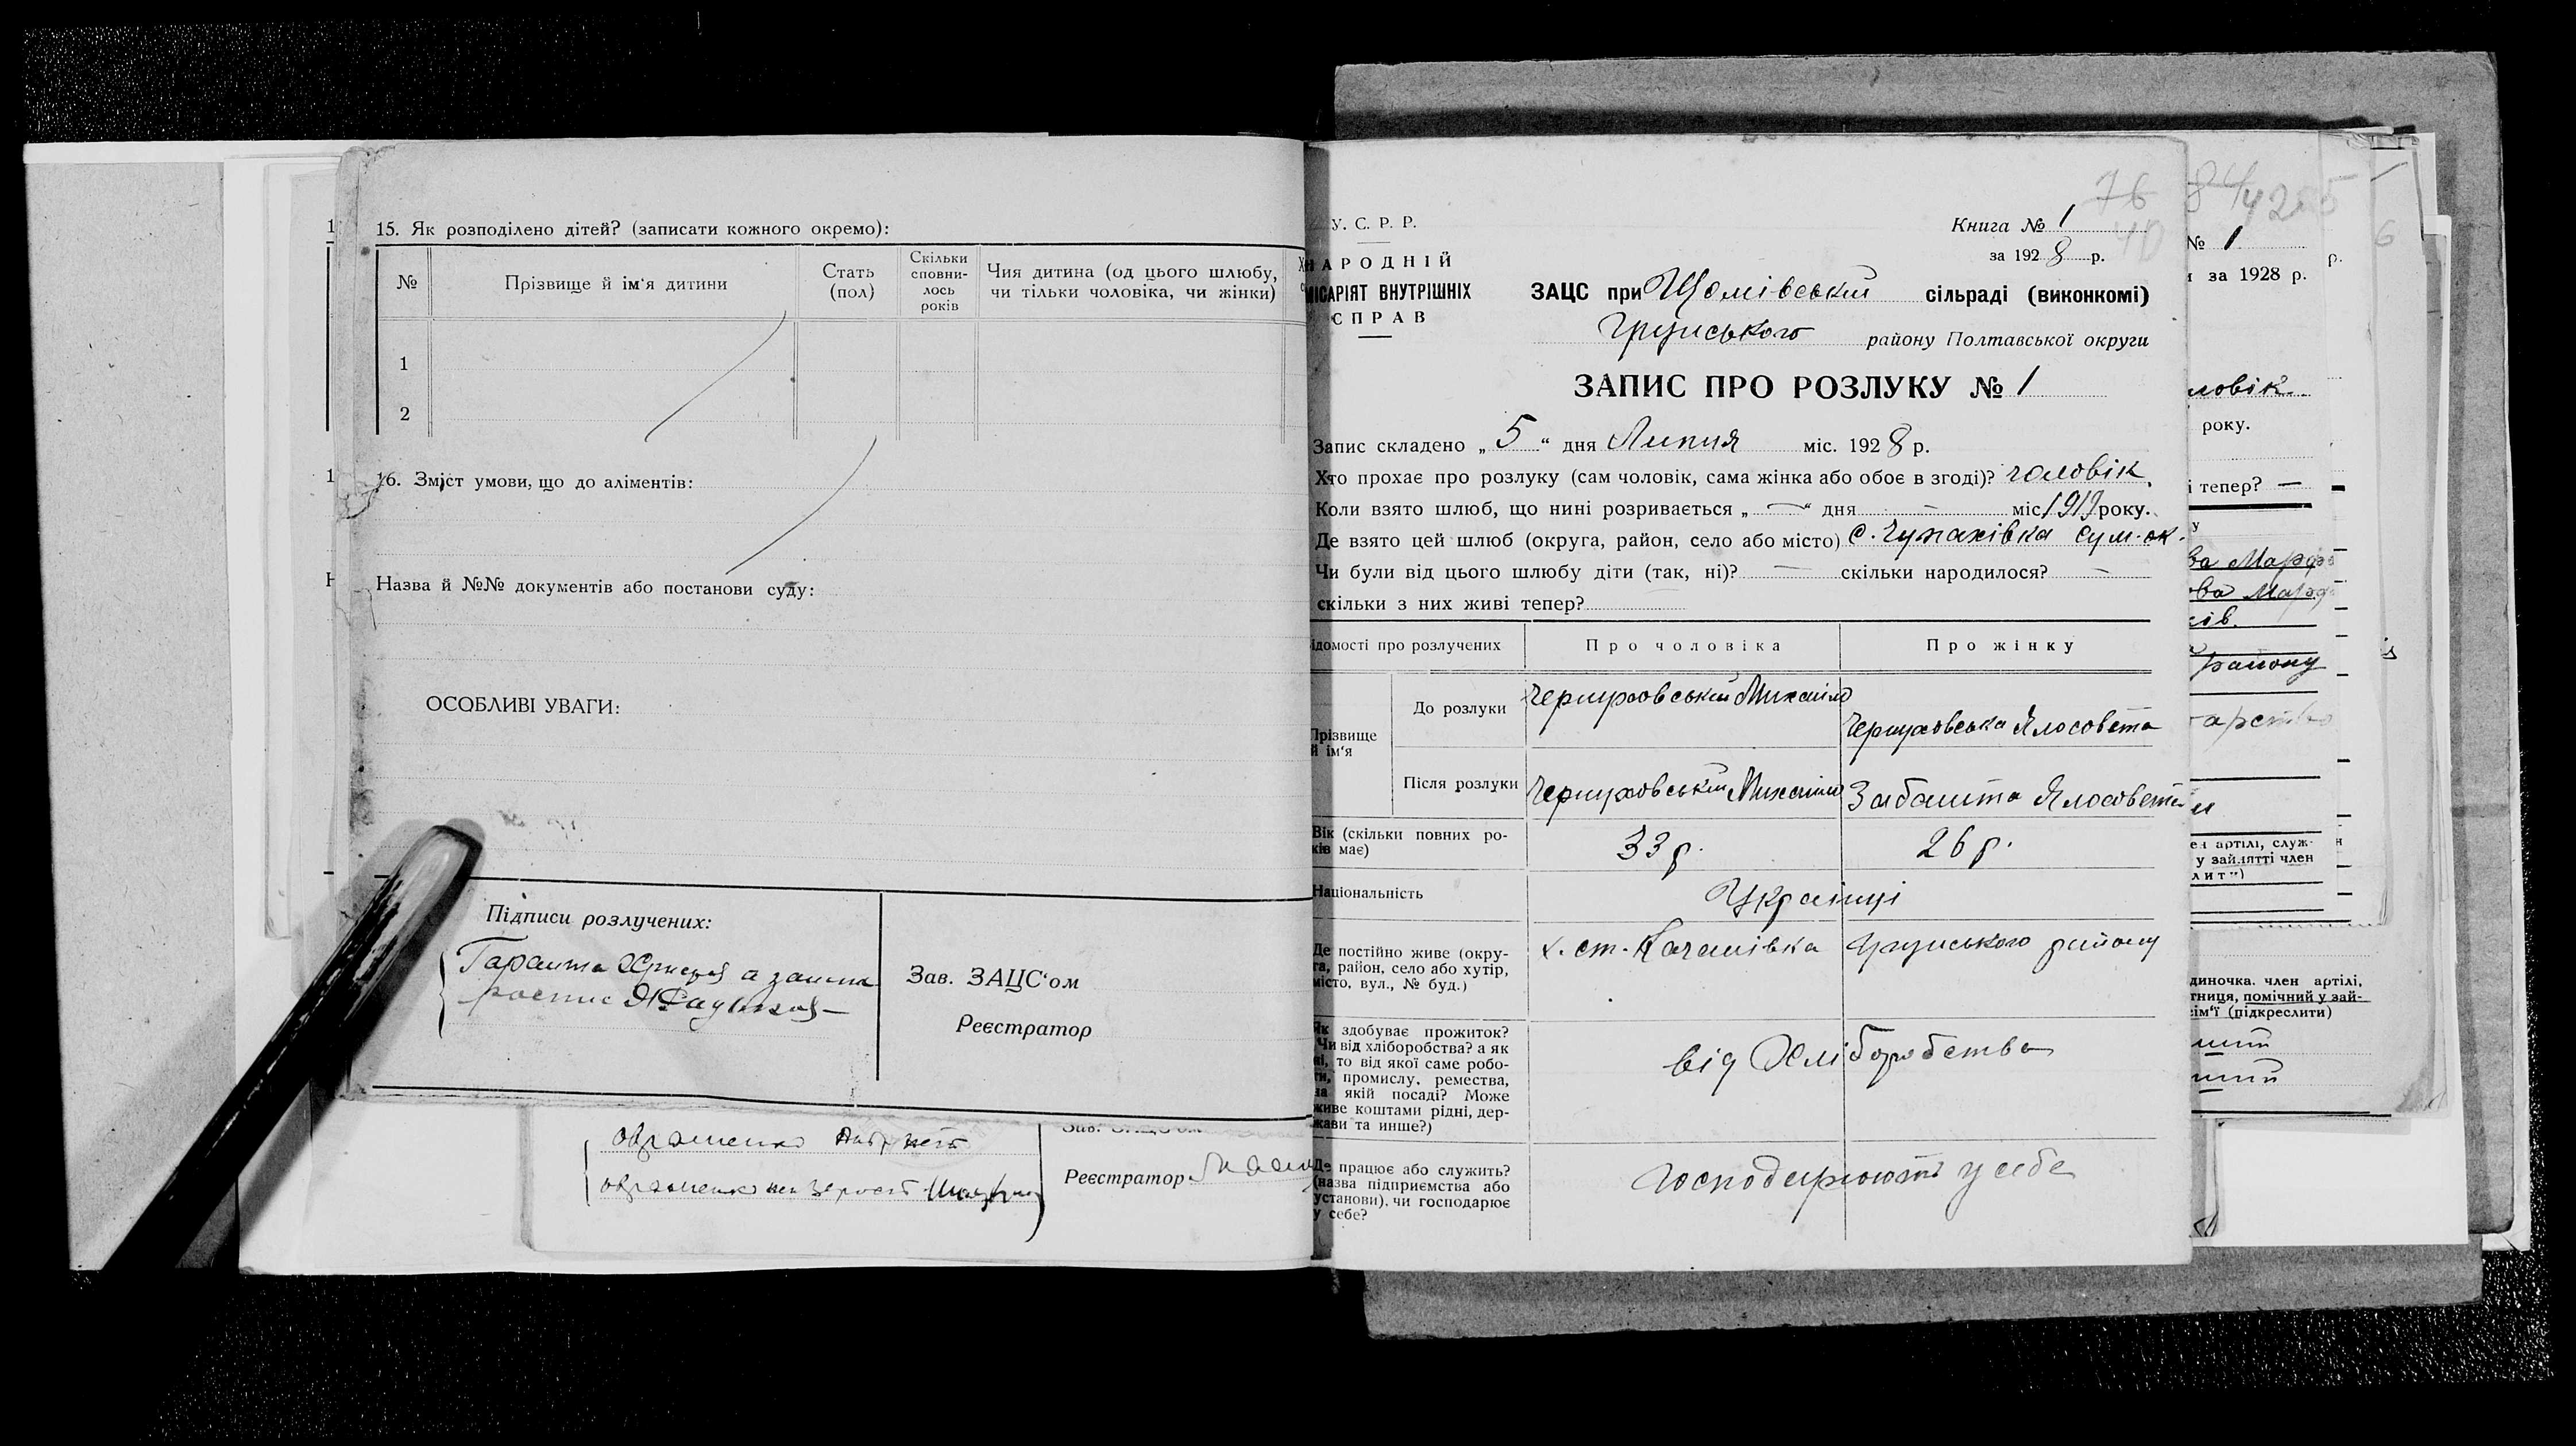 15. Як розподілено дітей? (записати кожного окремо):
№
Прізвище й ім'я дитини
Стать (пол)
Скільки сповни-
лось
років
Чия дитина (од цього шлюбу,
чи тільки чоловіка, чи жінки)
1
2
16. Зміст умови, що до аліментів:
Назва й №№ документів або постанови суду:
ОСОБЛИВІ УВАГИ:
Підписи розлучених:
Гаранта
Зав. ЗАЦС'ом
Реєстратор
Реєстратор
У. С. Р. Р.
НАРОДНІЙ
МІСАРІЯТ ВНУТРІШНІХ
СПРАВ
76
40
Книга № 1
за 1928 р.
ЗАЦС при сільраді (виконкомі)
Грунського району Полтавської округи
ЗАПИС ПРО РОЗЛУКУ № 1
Запис складено „5“ дня Липня міс. 1928 р.
Хто прохає про розлуку (сам чоловік, сама жінка або обоє в згоді)? чоловік.
Коли взято шлюб, що нині розривається „—“ дня — міс. 1919 року.
Де взято цей шлюб (округа, район, село або місто) с. Чупахівка Сум. ок.
Чи були від цього шлюбу діти (так, ні)? — скільки народилося? —
скільки з них живі тепер?
ідомості про розлучених
Про чоловіка
Про жінку
Прізвище
й ім'я
До розлуки
Черкуховський Михайло
Черкуховська Ялосовета
Після розлуки
Черкуховський Михайло
Забашта Ялосовета
Вік (скільки повних ро-
ків має)
33 р.
26 р.
Національність
Українці
Де постійно живе (окру-
га, район, село або хутір,
місто, вул., № буд.)
х. ст. Качанівка Грунського району
Як здобуває прожиток?
Чи від хліборобства? а як
ні, то від якої саме робо-
ти, промислу, ремества,
на якій посаді? Може
живе коштами рідні, дер-
жави та инше?)
від Хліборобства
Де працює або служить?
(назва підприємства або
установи), чи господарює
у себе?
господарюють у себе
№ 1
за 1928 р.
р.
ловік.
року.
і тепер? —
ва Марфа
ова Марф
району
ен артілі, служ-
у зайнятті член
лит")
диночка, член артілі,
тниця, помічний у зай-
сім'ї (підкреслити)